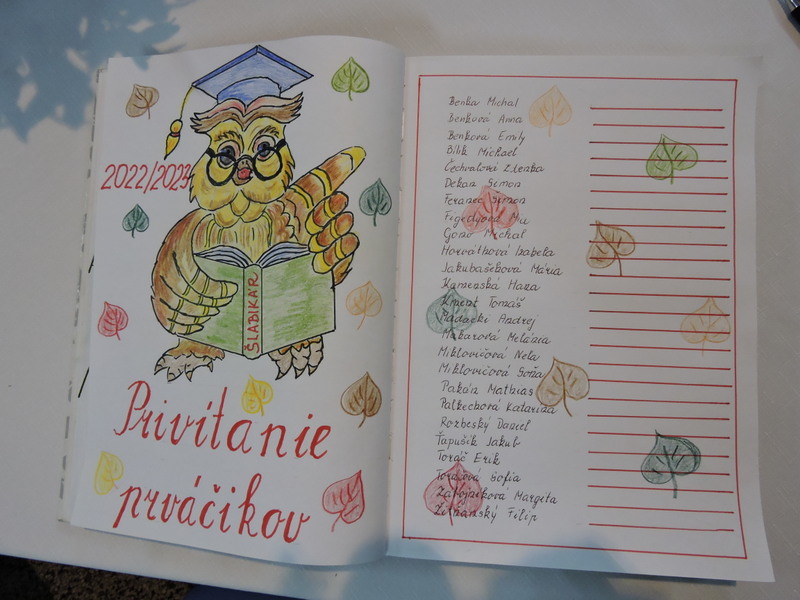 2022/2023
ŠLABIKÁR
Privítanie
prváčikov
Benka Michal
Benková Anna
Benková Emily
Bilik Michael
Čechvalová Zlenka
Dekan Šimon
Feranec Šimon
Figedyová Mu
Gono Michal
Horváthová Izabela
Jakubašeková Mária
Kamenská Hana
Kment Tomáš
Andrej
Makarová Melánia
Miklovičová Nela
Miklovičová Soňa
Pakán Mathias
Palkechová Katarína
Rozbeský Daniel
Ťapušík Jakub
Toráč Erik
Toráčová Sofia
Zabojníková Margeta
Žitňanský Filip